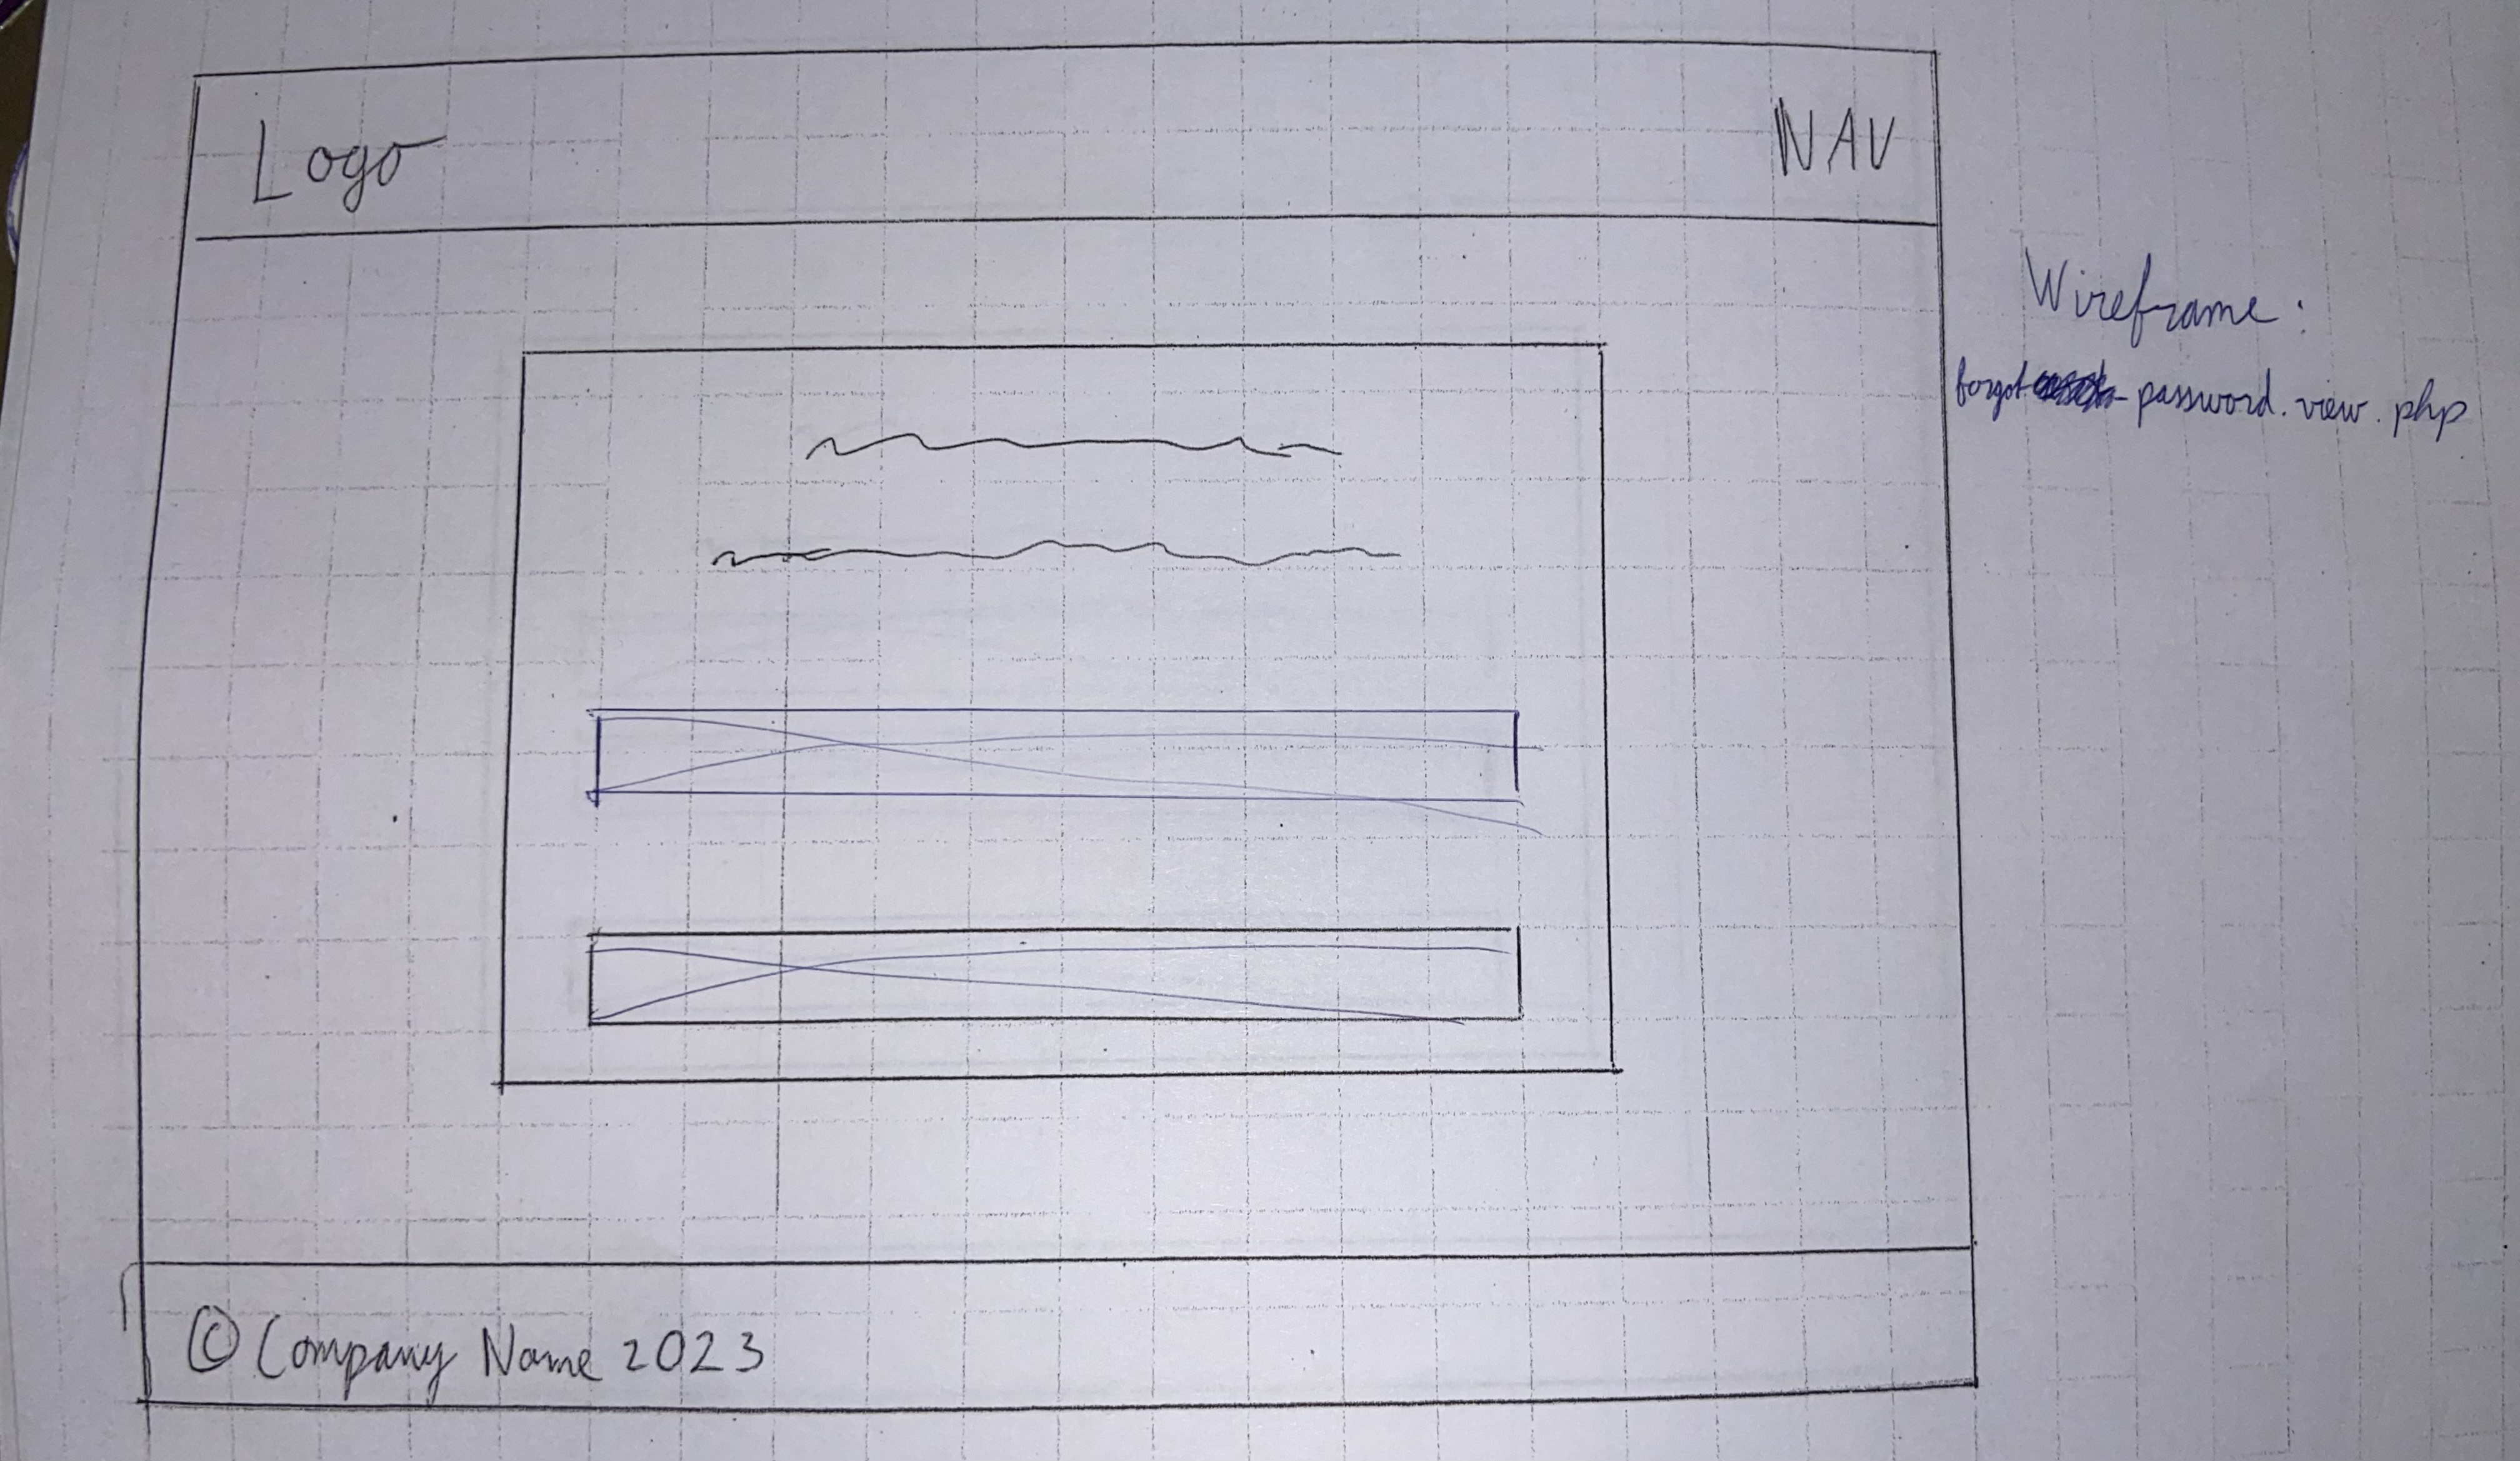 Logo
NAV
Wireframe:
forgot-password.view.php
© Company Name 2023